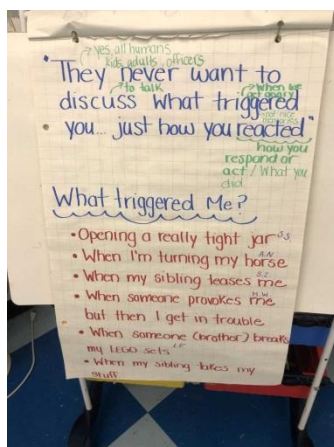 yes, all humans
kids, adults, officers
"They never want to
to talk
when we
get angry
discuss what triggered
not nice
memories
you... just how you reacted"
how you
respond or
act / What you
did.
What triggered Me?
• Opening a really tight jar S.S
• When I'm turning my horse A.N.
• When my sibling teases me S.Z.
• When someone provokes me H.W.
but then I get in trouble
• When someone (brother) breaks
my LEGO sets
• When my sibling takes my
stuff